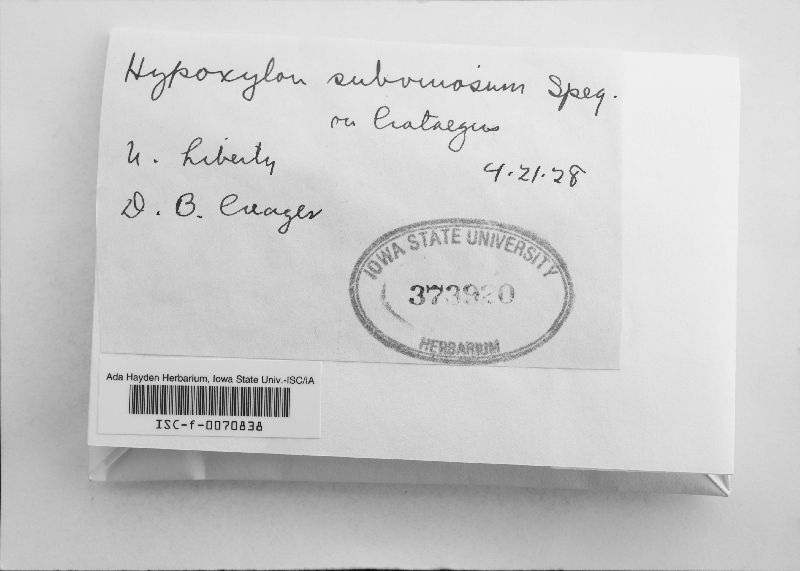 Hypoxylon subvinosum Speg.
on Crataegus
N. Liberty 4·21·28
D. B. Creager
IOWA STATE UNIVERSITY
373930
HERBARIUM
Ada Hayden Herbarium, Iowa State Univ.-ISC/IA
ISC-f-0070838